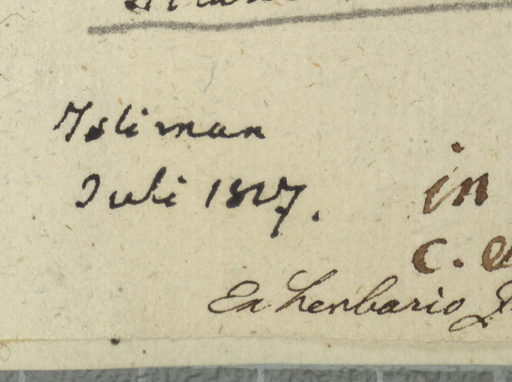 Isliman
Juli 1827.
in
c.
Ex herbario